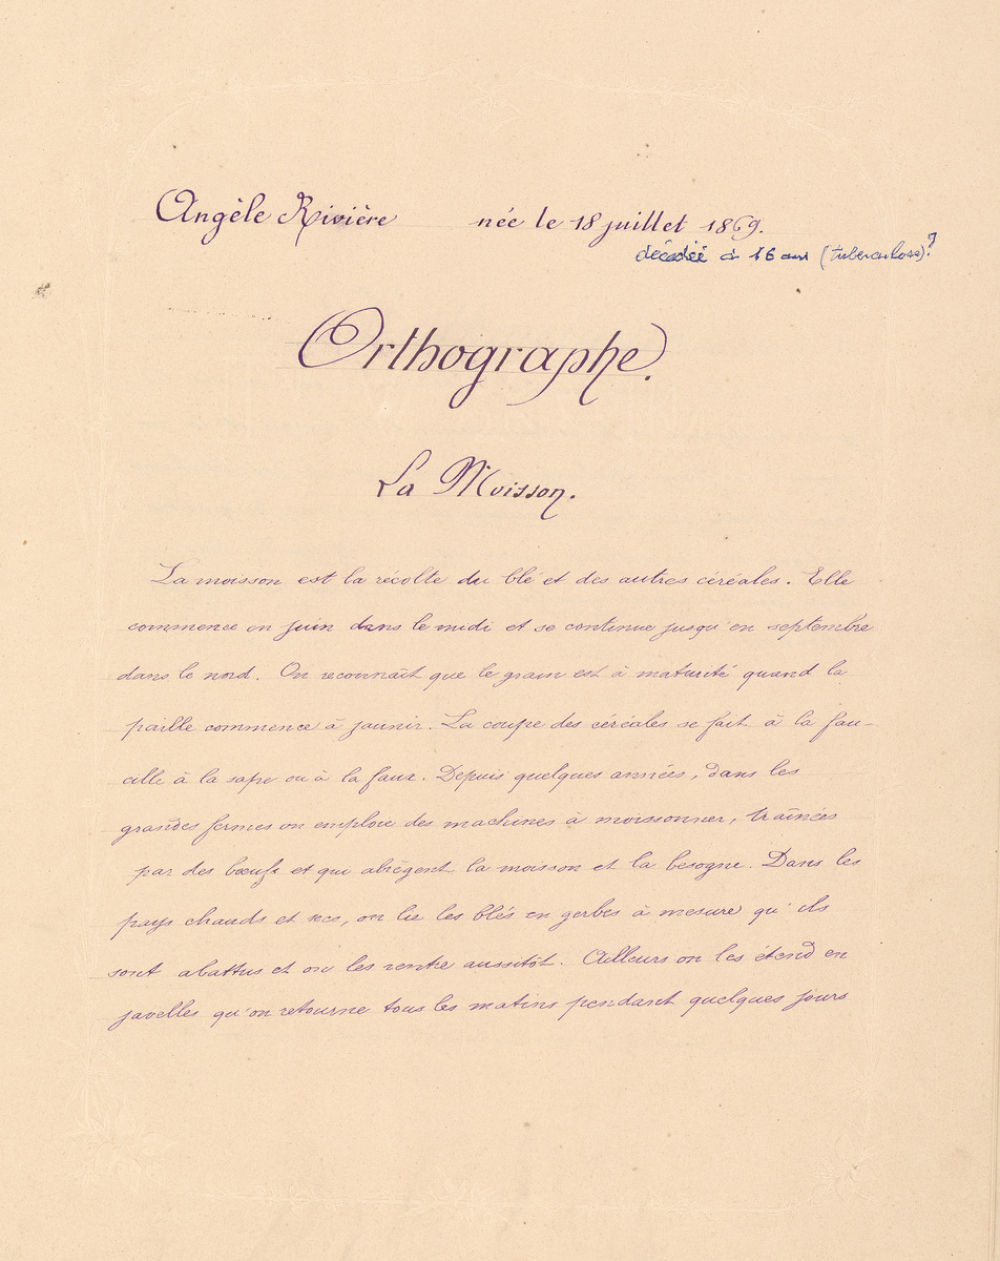 Angèle Rivière née le 18 juillet 1869.
décédée à 16 ans (tuberculose)?
Orthographe.
La Moisson.
La moisson est la récolte du blé et des autres céréales. Elle
commence en juin dans le midi et se continue jusqu'en septembre
dans le nord. On reconnaît que le grain est à maturité quand la
paille commence à jaunir. La coupe des céréales se fait à la fau-
cille à la sape ou à la faux. Depuis quelques années, dans les
grandes fermes on emploie des machines à moissonner, traînées
par des bœufs et qui abrègent la moisson et la besogne. Dans les
pays chauds et secs, on lie les blés en gerbes à mesure qu'ils
sont abattus et on les rentre aussitôt. Ailleurs on les étend en
javelles qu'on retourne tous les matins pendant quelques jours